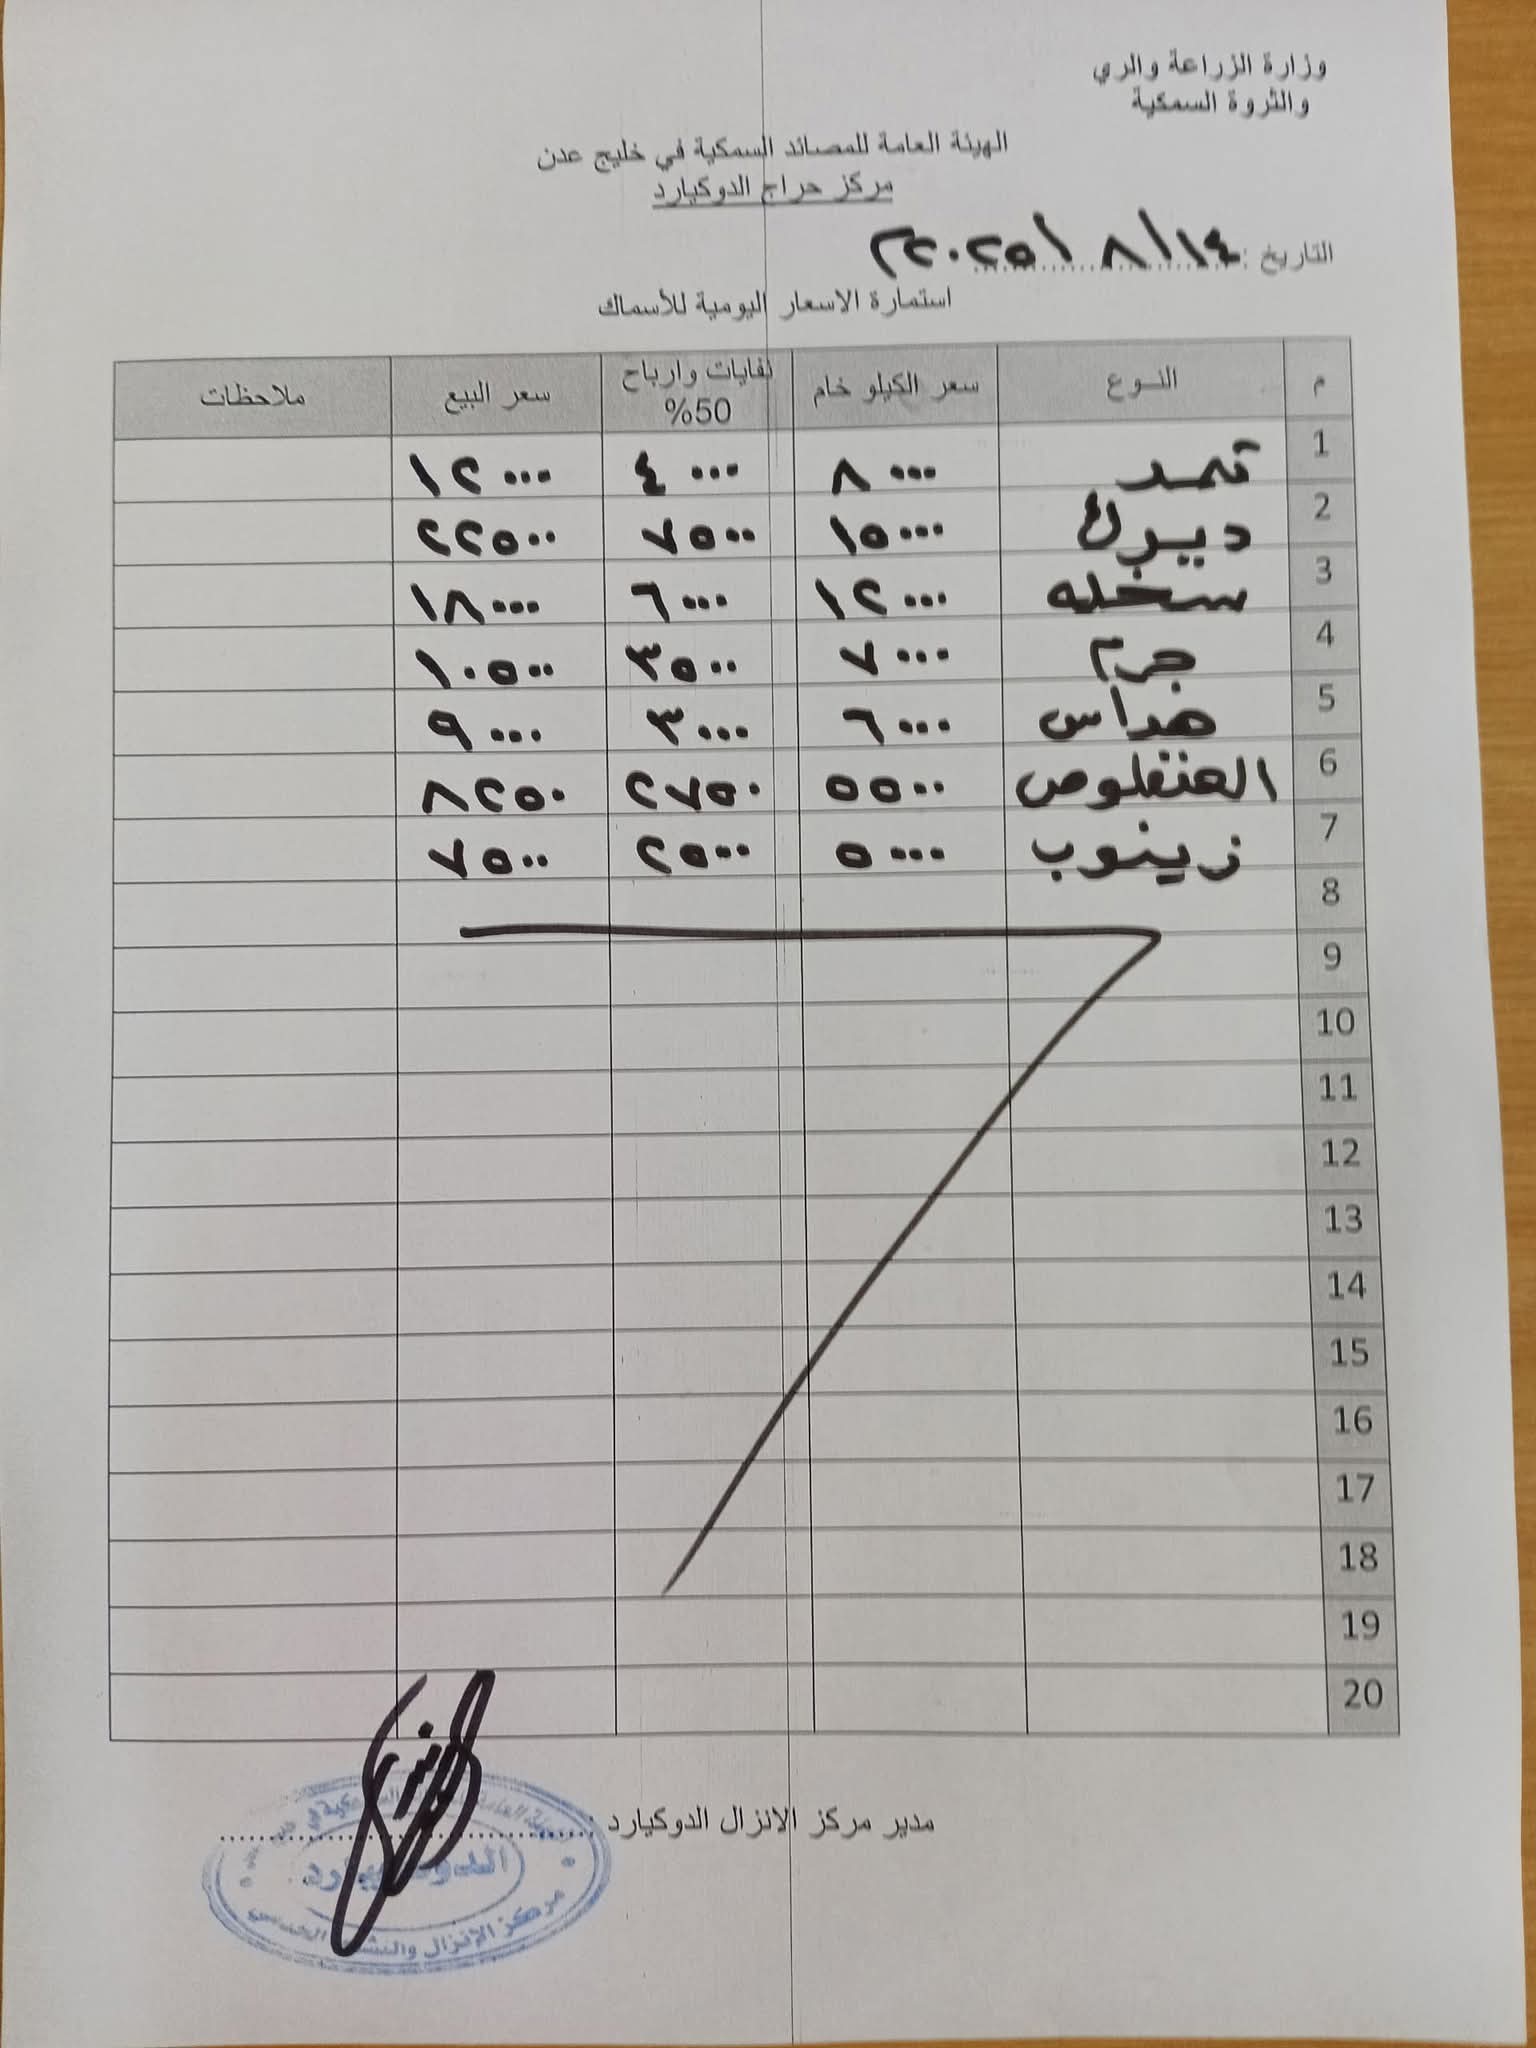 وزارة الزراعة والري
والثروة السمكية
الهيئة العامة للمصائد السمكية في خليج عدن
مركز حراج الدوكيارد
التاريخ : ١٤/ ٨ /٢٠٢٥م
استمارة الاسعار اليومية للأسماك
م النوع سعر الكيلو خام نفايات وارباح 50% سعر البيع ملاحظات
1 ثمد ٨٠٠٠ ٤٠٠٠ ١٢٠٠٠
2 ديرك ١٥٠٠٠ ٧٥٠٠ ٢٢٥٠٠
3 سخله ١٢٠٠٠ ٦٠٠٠ ١٨٠٠٠
4 جرم ٧٠٠٠ ٣٥٠٠ ١٠٥٠٠
5 هداس ٦٠٠٠ ٣٠٠٠ ٩٠٠٠
6 العنفلوص ٥٥٠٠ ٢٧٥٠ ٨٢٥٠
7 زينوب ٥٠٠٠ ٢٥٠٠ ٧٥٠٠
8
9
10
11
12
13
14
15
16
17
18
19
20
مدير مركز الانزال الدوكيارد
الدوكيارد
مركز الإنزال